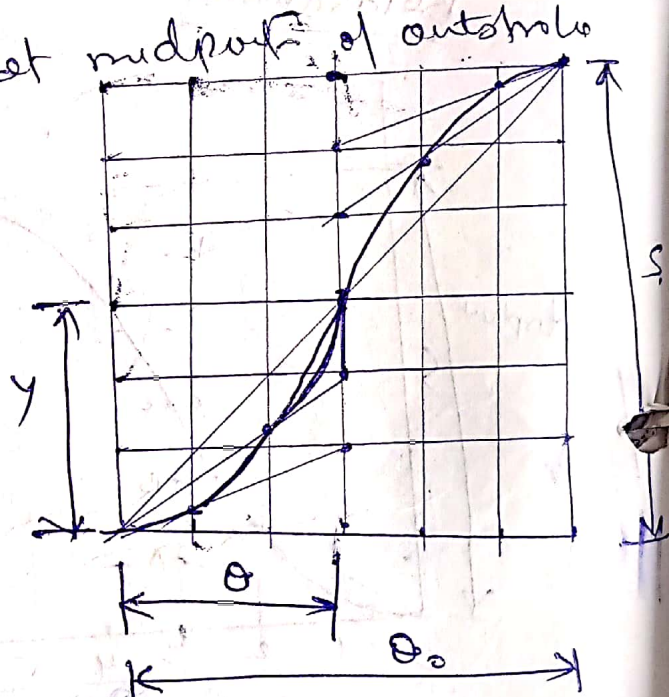 at midpoint of outstroke
S
y
θ
θ₀